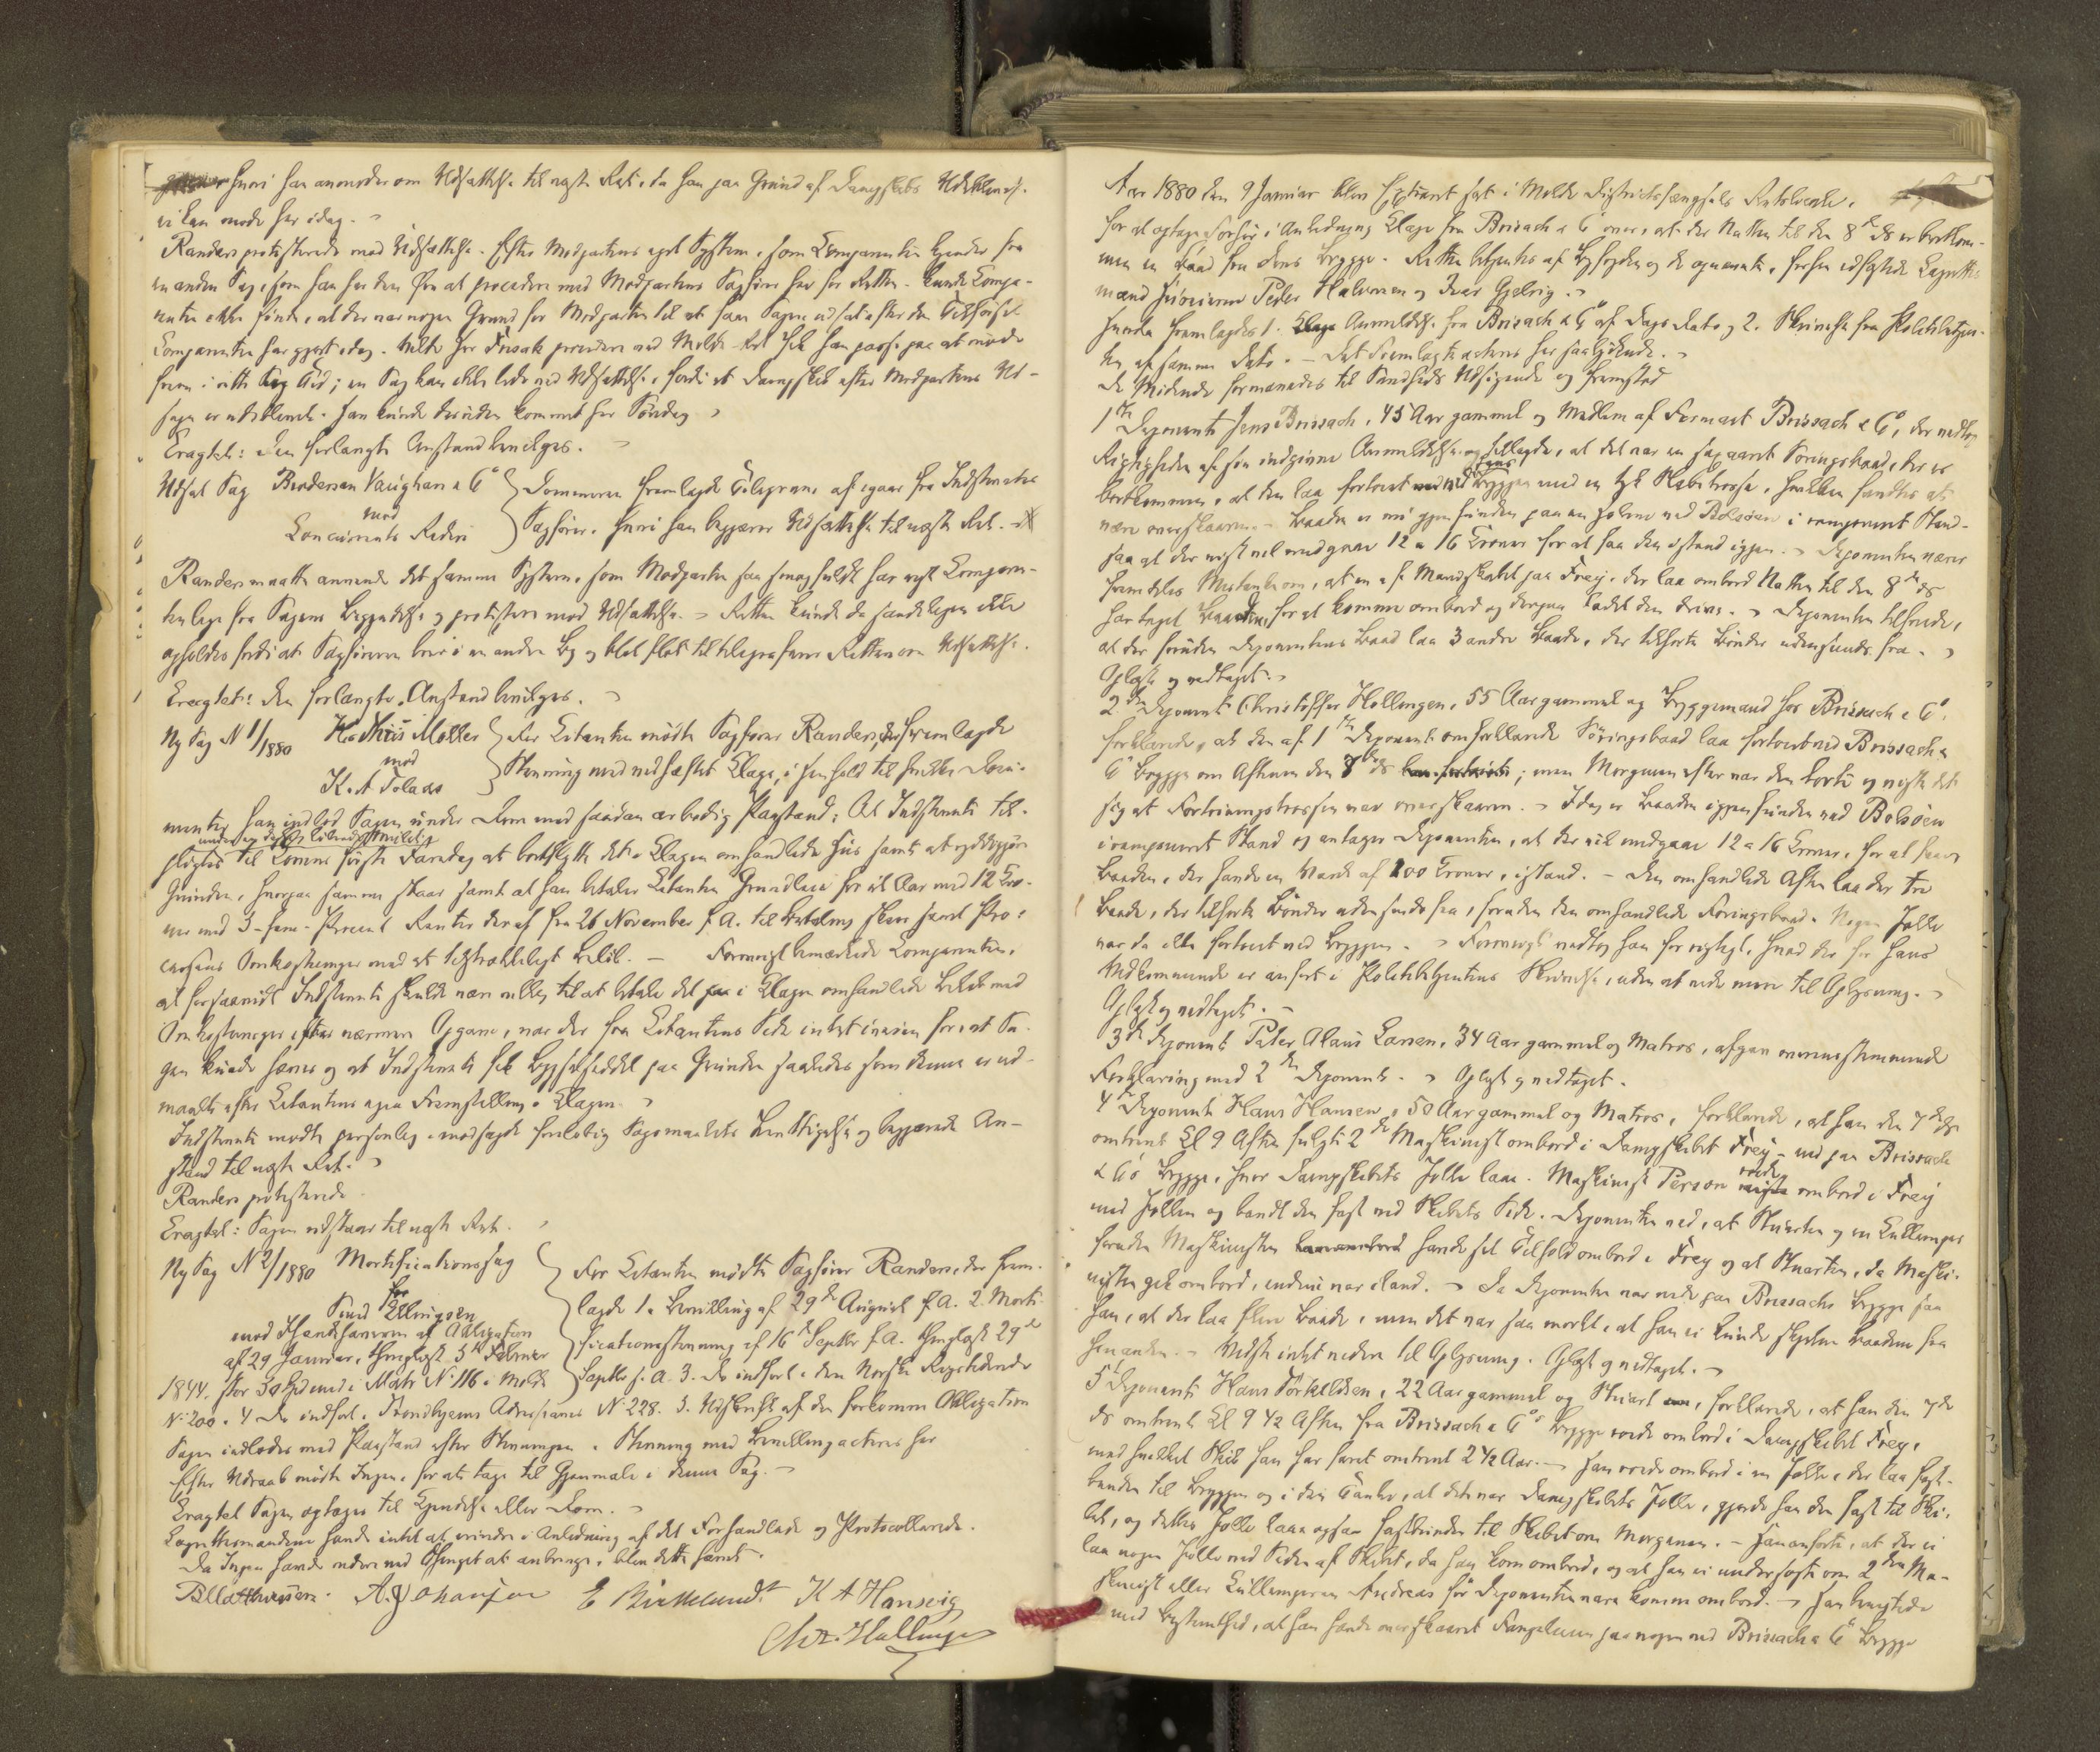 hvori han anmoder om Udsættelse til næste Ret, da han paa Grund af Dampskibs Udeblivelse
ei kan møde her idag. -
Randers protesterede mod Udsættelse. Efter Modpartens eget System, som Comparenten kjender fra
en anden Sag, som han har den Ære at procedere med Modpartens Sagfører her for Retten, kunde Compa-
renten ikke finde, at der var nogen Grund for Modparten til at faa Sagen udsat efter den Tilførsel
Comparenten har gjort idag. Vilde Hr Frisak procedere ved Molde Ret fik han passe paa at møde
frem i rette Tid; en Sag kan ikke lide ved Udsættelse, fordi et Dampskib efter Modpartens Ud-
sagn er udeblevet. Han kunde desuden kommet før Søndag.
Eragtet: Den forlangte Anstand bevilges.
Udsat Sag Brødersen Vaughan & Co
mod
Concurrents Rederi
Domineren fremlagde Telegram af igaar fra Indstevntes
Sagfører, hvori han begjærer Udsættelse til næste Ret. -
Randers maatte anvende det samme System, som Modparten saa smagfuldt har vist Comparen-
ten lige fra Sagens Begyndelse og protestere mod Udsættelse. - Retten kunde da sandeligen ikke
opholdes fordi at Sagføreren bor i en anden By og blot fløt til telegrafere Retten om Udsættelse.
Eragtet: Den forlangte Anstand bevilges.
Ny Sag N 1/1880 K. Møller
mod
K. A Tolaas
For Citanten mødte Sagfører Randers, der fremlagde
Stevning med vedhæftet Klage, i Henhold til hvilke Docu-
menter han indlod Sagen under Dom med saadan ærbødig Paastand: At Indstevnte til-
pligtes til Komne første Faredag at bortflytte det i Klagen omhandlede Hus samt at ryddiggjøre
Grunden, hvorpaa samme staar samt at han betaler Citanten Grundleie for et Aar med 12 Kro-
ner med 5 - fem - Procent Renter deraf fra 26 November f. A. til Betaling skeer samt Pro-
cessens Omkostninger med et tilstrækkeligt Beløb. - Forøvrigt bemærkede Comparenten,
at forsaavidt Indstevnte skulde være villig til at betale det i Klagen omhandlede Beløb med
Omkostninger efter nærmere Opgave, var der fra Citantens Side intet iveien for, at Sa-
gen kunde hæves og at Indstevnte fik Bygselseddel paa Grunden saaledes som denne er ud-
maalt efter Citantens egen Fremstilling i Klagen.
Indstevnte mødte personlig, modsagde foreløbig Søgsmaalets Berettigelse og begjærede An-
stand til næste Ret.
Randers protesterede.
Eragtet: Sagen udstaar til næste Ret.
Ny Sag N 2/1880 Mortificationssag
for
Ellingsen
mod Ihændehaveren af Obligation
af 29 Januar, thinglæst 5te Februar
1844, stor 50 Spd med i Matr No 116 i Molde
For Citanten mødte Sagfører Randers, der frem-
lagde 1. Bevilling af 29de August f. A. 2. Morti-
ficationsstevning af 16de Septbr f. A. thinglæst 29de
Septbr s. A. 3. Do indført i den Norske Rigstidende
No 200. 4 Do indført i Trondhjems Adresseavis No 228. 5. Udskrift af den forkomne Obligation
Sagen indlodes med Paastand efter Stevningen. Stevning med Bevilling acteres her
Efter Udraab mødte Ingen, for at tage til Gjenmæle i denne Sag. -
Eragtet Sagen optages til Kjendelse eller Dom.
Lagrettemændene havde intet at erindre i Anledning af det Forhandlede og Protocollerede.
Da Ingen havde videre ved Thinget at anbringe, blev dette hævet.
A. Johansen E Birkelund. K A Hansvig
Chr. Hallinge
Aar 1880 den 9 Januar blev Extraret sat i Molde Districtsfængsels Retslocale,
for at optage Forhør i Anledning Klage fra Brissach & Co over, at der Natten til den 8de ds er bortkom-
men en Baad fra deres Brygge. Retten betjentes af Byfogden og de opnævnte, forhen edfæstede Lagrettes-
mænd Huseierne Peder Halvorsen og Iver Gjelvig. -
Herunder fremlagdes 1. Anmeldelse fra Brissach & Co af Dags Dato og 2. Skrivelse fra Politibetjen-
ten af samme Dato. - Det Fremlagte acteres her saalydende. -
De Mødende formanedes til Sandheds Udsigende og fremstod
1ste Deponent Jens Brissach, 45 Aar gammel og Medlem af Firmaet Brissach & Co, der vedtog
Rigtigheden af sin indgivne Anmeldelse og tillagde, at det var en saakaldt Føringsbaad, der er
bortkommen, at den laa fortøiet ved Bryggen med en tyk Kabeltrosse, hvilken fandtes at
være overskaaren. - Baaden er nu gjenfunden paa en Holme ved Bolsøen i ramponeret Stand-
saa at der vist vil medgaa 12 a 16 Kroner for at faa den istand igjen. - Deponenten nærer
fremdeles Mistanke om, at en af Mandskabet paa Frey, der laa ombord Natten til den 8de ds
har taget Baaden, for at komme ombord og derpaa ladet den drive. - Deponenten tilføiede,
at der foruden Deponentens Baad laa 3 andre Baade, der tilhørte Bønder udensunds fra. -
Oplæst og vedtaget. -
2den Deponent Christoffer Hollingen, 55 Aar gammel og Bryggemand hos Brissach & Co.
forklarede, at den af 1ste Deponent omforklarede Føringsbaad laa fortøiet ved Brissach &
Co Brygge om Aftenen den 7de ds; men Morgenen efter var den borte og viste det
sig at Fortøiningstrossen var overskaaren. - Idag er Baaden igjenfunden ved Bolsøen
i ramponeret Stand og antager Deponenten, at der vil medgaa 12 a 16 Kroner, for at faa
Baaden, der havde en Værdi af 100 Kroner, istand. - Den omhandlede Aften laa der tre
Baade, der tilhørte Bønder udensunds fra, foruden den omhandlede Føringsbaad. Nogen Jolle
var da ikke fortøiet ved Bryggen. - Forøvrigt vedtog han for rigtigt, hvad der for hans
Vedkommende er anført i Politibetjentens Skrivelse, uden at vide mere til Oplysning. -
Oplæst og vedtaget. -
3die Deponent Peter Olaus Larsen, 34 Aar gammel og Matros, afgav overensstemmende
Forklaring med 2den Deponent. - Oplæst og vedtaget.
4 Deponent Hans Hansen, 50 Aar gammel og Matros, forklarede, at han den 7de ds
omtrent Kl 9 Aften fulgte 2den Maskinist ombord i Dampskibet Frey - ned paa Brissach
& Co's Brygge, hvor Dampskibets Jolle laa. Maskinist Person roede ombord i Frey
med Jollen og bandt den fast ved Skibets Side. Deponenten ved, at Stuerten og en Kullemper
foruden Maskinisten havde sit Tilhold ombord i Frey og at Stuerten, da Maski-
nisten gik ombord, endnu var iland. - Da Deponenten var nede paa Brissachs Brygge saa
han, at der laa flere Baade, men det var saa mørkt, at han ei kunde skjelne Baadene fra
hinanden. - Vidste intet videre til Oplysning. Oplæst og vedtaget. -
5 Deponent Hans Torkeldsen, 22 Aar gammel og Stuert, forklarede, at han den 7de
ds omtrent Kl 9 1/2 Aften fra Brissach & Co's Brygge roede ombord i Dampskibet Frey,
med hvilket Skib han har faret omtrent 2 1/2 Aar. - Han roede ombord i en Jolle, der laa fast-
bunden til Bryggen og i den Tanke, at det var Dampskibets Jolle, gjorde han den fast til Ski-
bet, og denne Jolle laa ogsaa fastbunden til Skibet om Morgenen. - Han anførte, at der ei
laa nogen Jolle ved Siden af Skibet, da han kom ombord, og at han ei undersøgte om 2den Ma-
skinist eller Kullemperen Andreas før Deponenten vare komne ombord. - Han benegtede
med Bestemthed, at han havde overskaaret Fangelinen paa nogen ved Brissach & Co Brygge